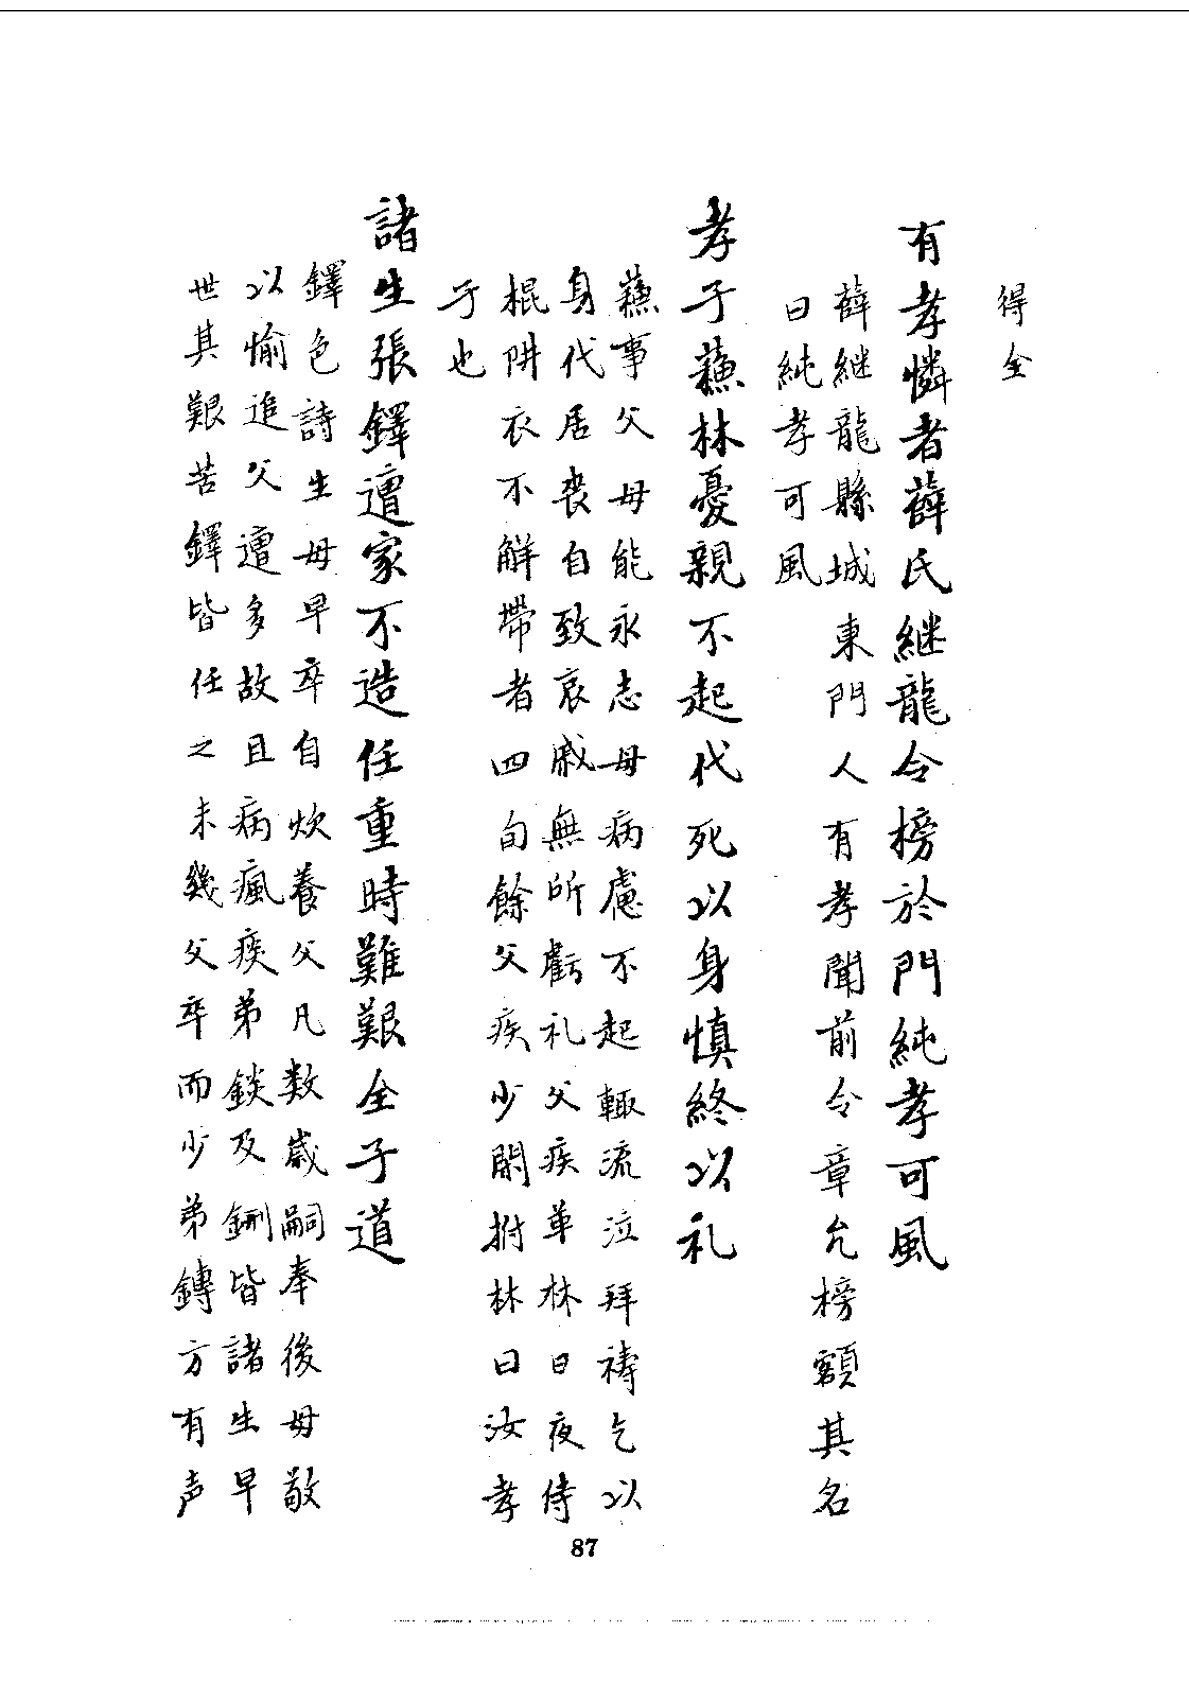 得全
有孝憐者薛氏継龍令榜於門純孝可風
薛継龍縣城東門人有孝聞前令章允榜額其名
曰純孝可風
孝子蘓林憂親不起代死以身慎終以礼
蘓事父母能永志母病慮不起輙流泣拜祷乞以
身代居丧自致哀戚無所虧礼父疾革林日夜侍
棍阱衣不觧帶者四旬餘父疾少閒拊林曰汝孝
子也
諸生張鐸遭家不造任重時難艱全子道
鐸色詩生母早卒自炊養父凡数歲嗣奉後母敬
以愉追父遭多故且病瘋疾弟錟及鉶皆諸生早
世其艱苦鐸皆任之未幾父卒而少弟鏄方有声
87